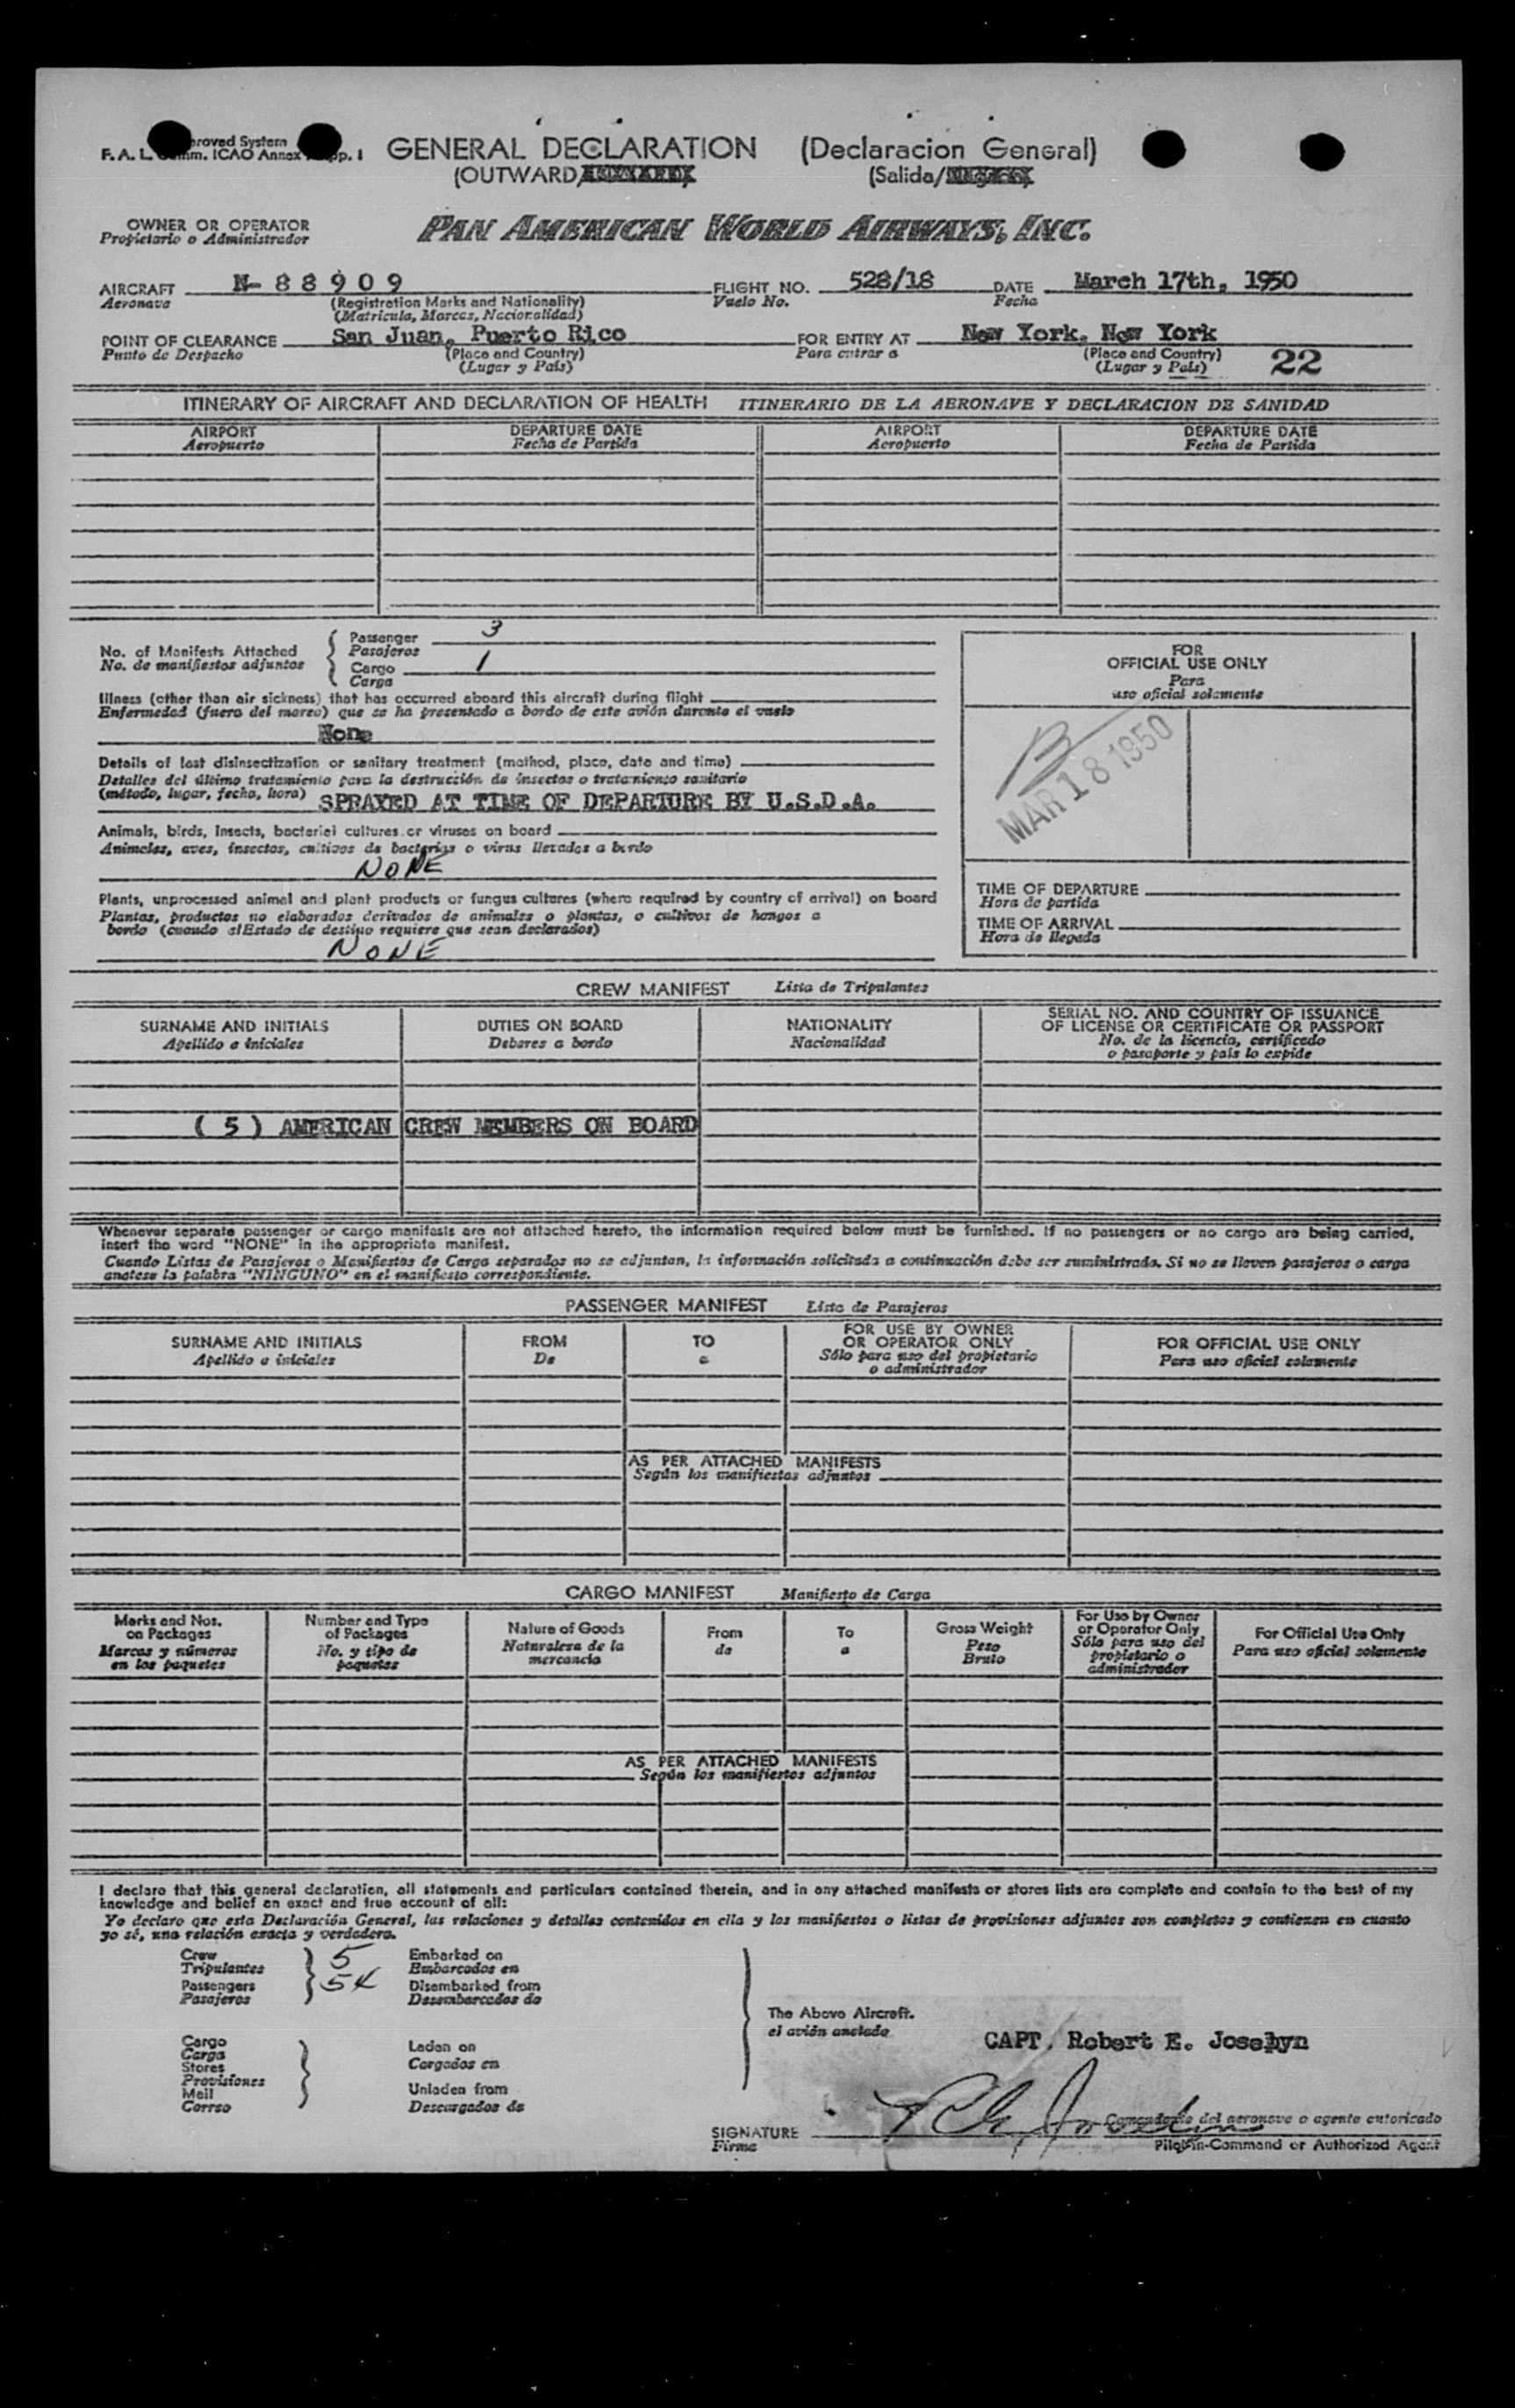 F. A. L. Comm. ICAO Annex App. 1
GENERAL DECLARATION (Declaracion General)
(OUTWARD/ (Salida/
OWNER OR OPERATOR
Propietario o Administrador
PAN AMERICAN WORLD AIRWAYS, INC.
AIRCRAFT N- 8 8 9 0 9 FLIGHT NO. 528/18 DATE March 17th, 1950
Aeronave (Registration Marks and Nationality) Vuelo No. Fecha
(Matricula, Marcas, Nacionalidad)
POINT OF CLEARANCE San Juan, Puerto Rico FOR ENTRY AT New York, New York
Punto de Despacho (Place and Country) Para entrar a (Place and Country)
(Lugar y País) (Lugar y País) 22
ITINERARY OF AIRCRAFT AND DECLARATION OF HEALTH ITINERARIO DE LA AERONAVE Y DECLARACION DE SANIDAD
AIRPORT DEPARTURE DATE AIRPORT DEPARTURE DATE
Aeropuerto Fecha de Partida Aeropuerto Fecha de Partida
No. of Manifests Attached
No. de manifiestos adjuntos
Passenger 3
Pasajeros
Cargo 1
Carga
Illness (other than air sickness) that has occurred aboard this aircraft during flight
Enfermedad (fuera del mareo) que se ha presentado a bordo de este avión durante el vuelo
None
Details of last disinsectization or sanitary treatment (method, place, date and time)
Detalles del último tratamiento para la destrucción de insectos o tratamiento sanitario
(método, lugar, fecha, hora) SPRAYED AT TIME OF DEPARTURE BY U.S.D.A.
Animals, birds, insects, bacteriel cultures or viruses on board
Animales, aves, insectos, cultivos de bacterias o virus llevados a bordo
NONE
Plants, unprocessed animal and plant products or fungus cultures (where required by country of arrival) on board
Plantas, productos no elaborados derivados de animales o plantas, o cultivos de hongos a
bordo (cuando el Estado de destino requiere que sean declarados)
NONE
FOR
OFFICIAL USE ONLY
Para
uso oficial solamente
MAR 18 1950
TIME OF DEPARTURE
Hora de partida
TIME OF ARRIVAL
Hora de llegada
CREW MANIFEST Lista de Tripulantes
SURNAME AND INITIALS
Apellido e iniciales
DUTIES ON BOARD
Deberes a bordo
NATIONALITY
Nacionalidad
SERIAL NO. AND COUNTRY OF ISSUANCE
OF LICENSE OR CERTIFICATE OR PASSPORT
No. de la licencia, certificado
o pasaporte y país lo expide
( 5 ) AMERICAN CREW MEMBERS ON BOARD
Whenever separate passenger or cargo manifests are not attached hereto, the information required below must be furnished. If no passengers or no cargo are being carried,
insert the word "NONE" in the appropriate manifest.
Cuando Listas de Pasajeros o Manifiestos de Carga separados no se adjuntan, la información solicitada a continuación debe ser suministrada. Si no se lleven pasajeros o carga
anotese la palabra "NINGUNO" en el manifiesto correspondiente.
PASSENGER MANIFEST Lista de Pasajeros
SURNAME AND INITIALS
Apellido e iniciales
FROM
De
TO
a
FOR USE BY OWNER
OR OPERATOR ONLY
Sólo para uso del propietario
o administrador
FOR OFFICIAL USE ONLY
Para uso oficial solamente
AS PER ATTACHED MANIFESTS
Según los manifiestos adjuntos
CARGO MANIFEST Manifiesto de Carga
Marks and Nos.
on Packages
Marcas y números
en los paquetes
Number and Type
of Packages
No. y tipo de
paquetes
Nature of Goods
Naturaleza de la
mercancía
From
de
To
a
Gross Weight
Peso
Bruto
For Use by Owner
or Operator Only
Sólo para uso del
propietario o
administrador
For Official Use Only
Para uso oficial solamente
AS PER ATTACHED MANIFESTS
Según los manifiestos adjuntos
I declare that this general declaration, all statements and particulars contained therein, and in any attached manifests or stores lists are complete and contain to the best of my
knowledge and belief an exact and true account of all:
Yo declaro que esta Declaración General, las relaciones y detalles contenidos en ella y los manifiestos o listas de provisiones adjuntos son completos y contienen en cuanto
yo sé, una relación exacta y verdadera.
Crew 5
Tripulantes
Passengers 54
Pasajeros
Embarked on
Embarcados en
Disembarked from
Desembarcados de
Cargo
Carga
Stores
Provisiones
Mail
Correo
Laden on
Cargados en
Unladen from
Descargados de
The Above Aircraft.
el avión anotado
CAPT. Robert E. Joselyn
SIGNATURE
Firma
Comandante del aeronave o agente autoricado
Pilot-in-Command or Authorized Agent